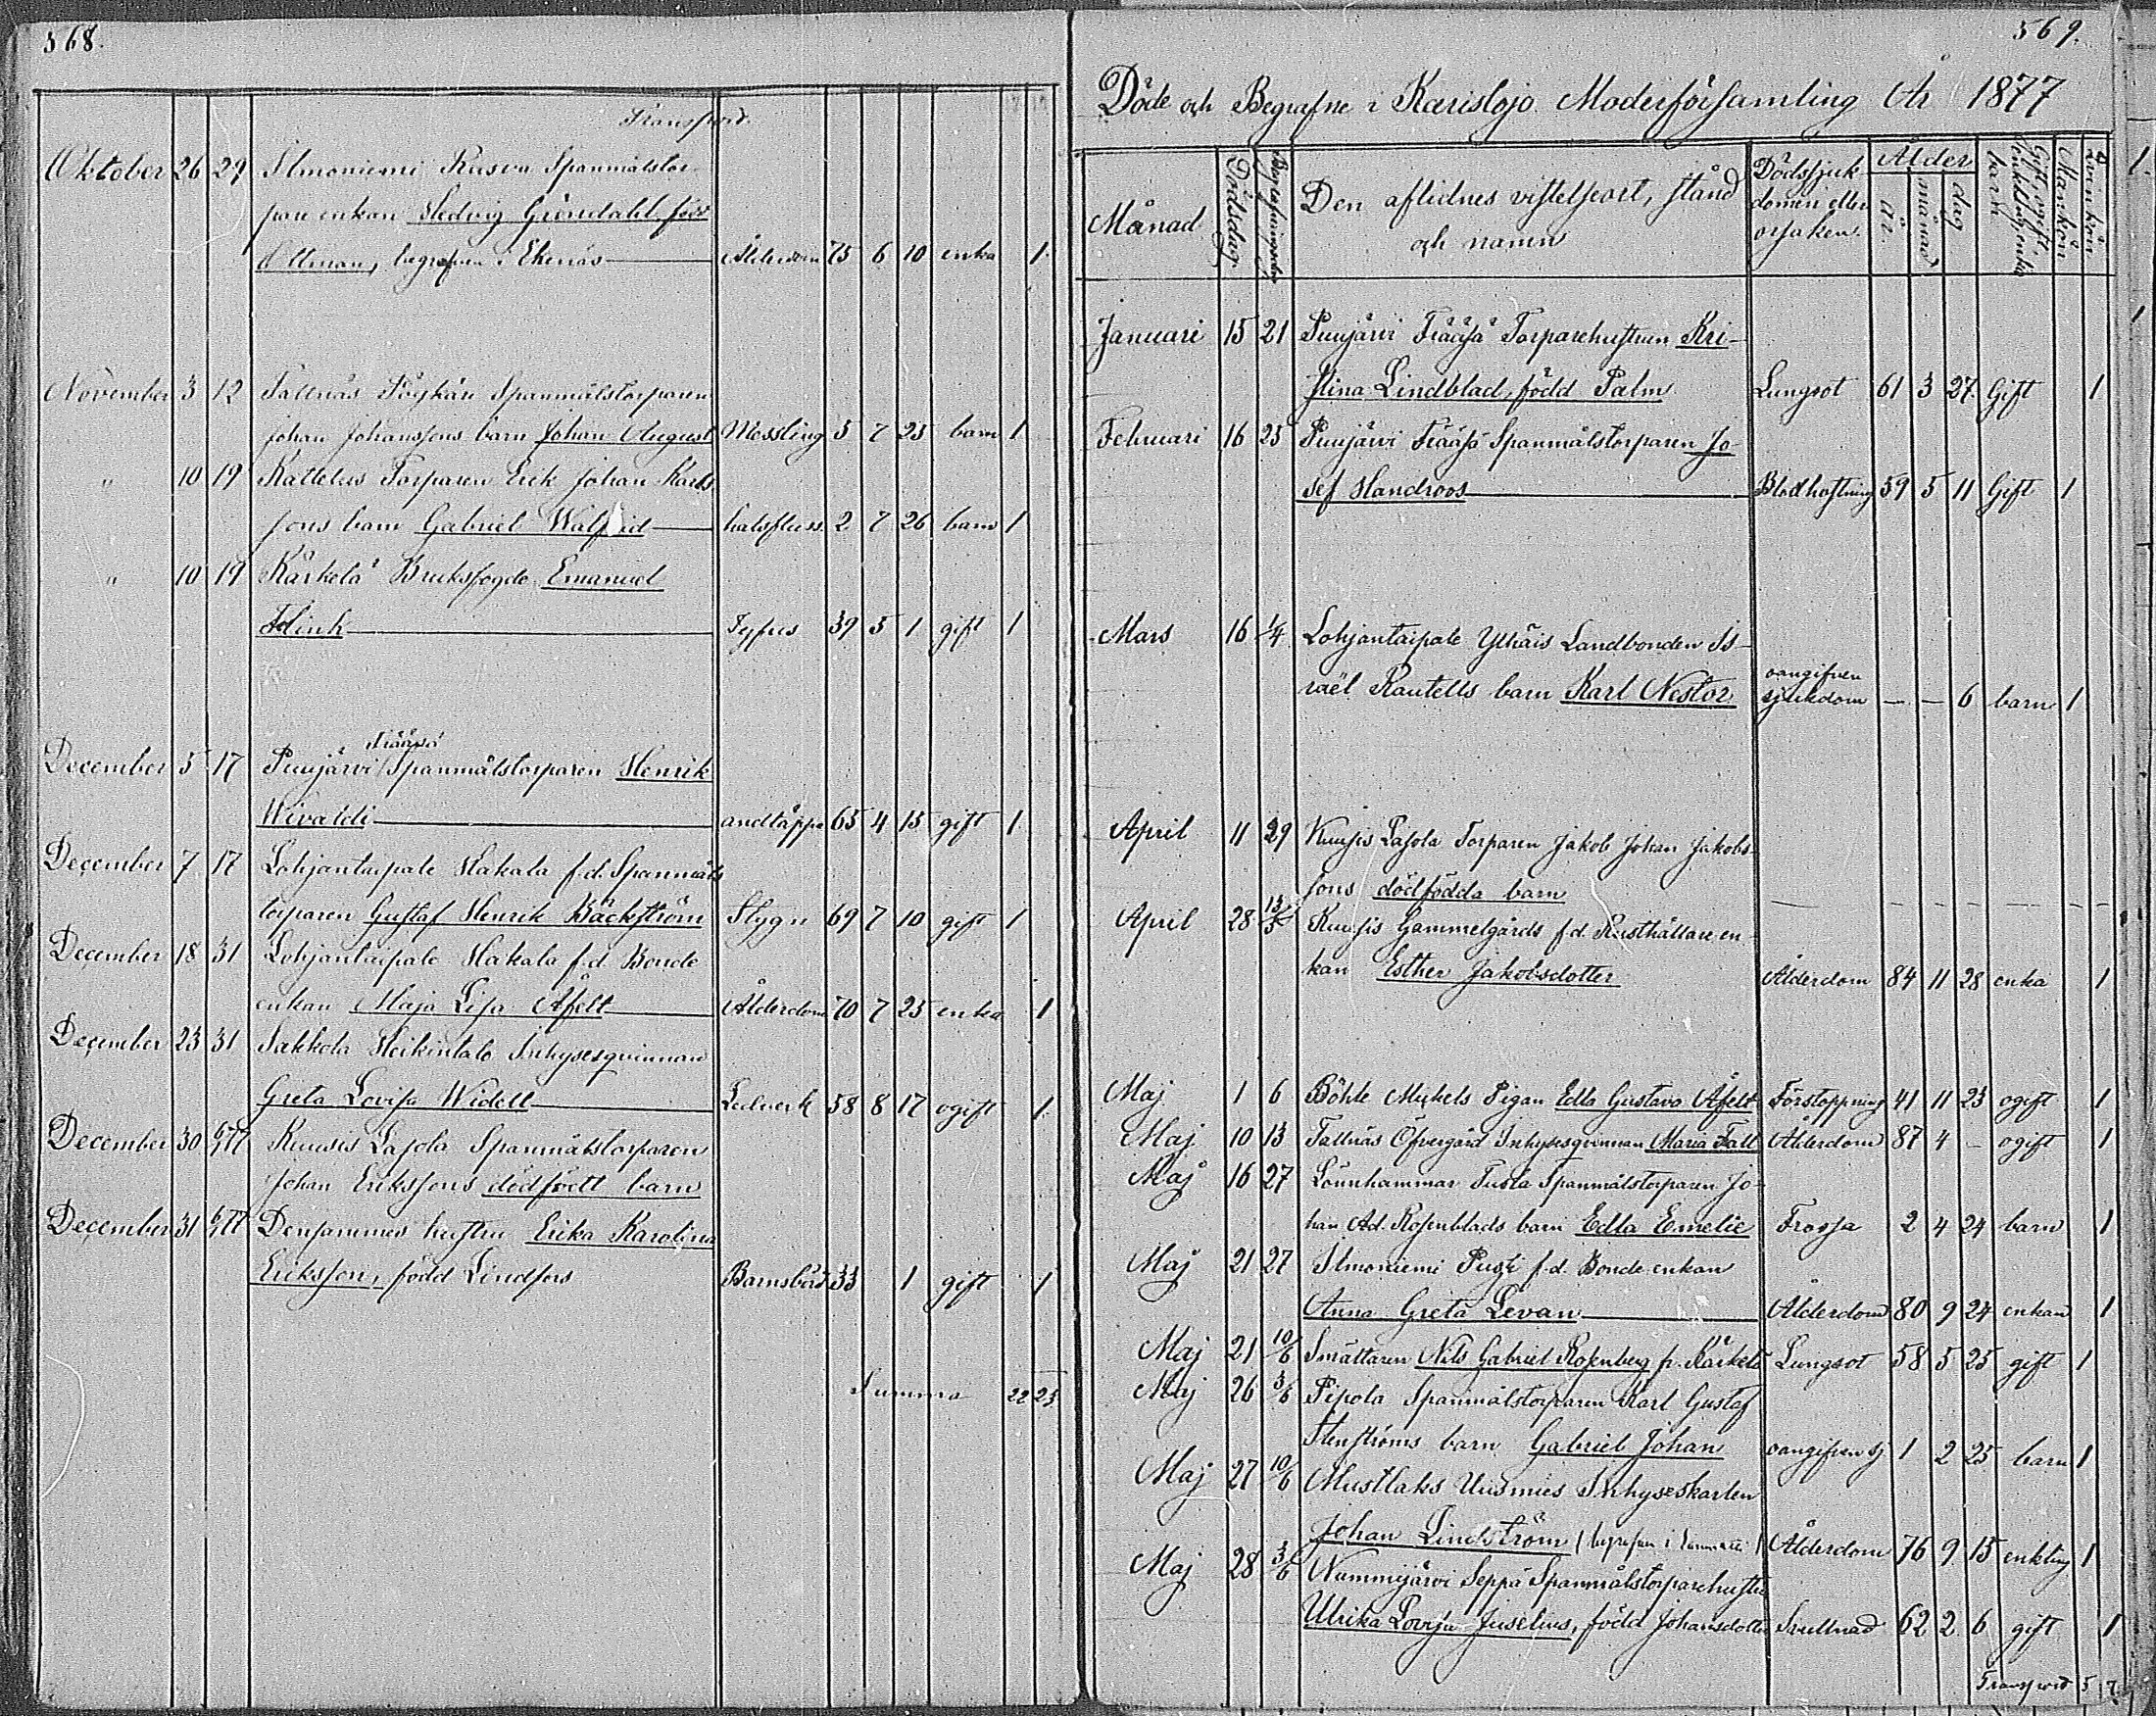 568.
Transport.
Oktober 26 29 Ilmoniemi Rusva Spanmålstor-
pare enkan Hedvig Gröndahl född
Ottman, begrafven i Ekenäs Ålderdom 75 6 10 enka 1
November 3 12 Tallnäs Spanmålstorparen
Johan Johanssons barn Johan August Messling 5 7 23 barn 1
" 10 19 Kattelus Torparen Erik Johan Karls
sons barn Gabriel Walfrid halsfluss. 2 7 26 barn 1
" 10 19 Kärkelä Bruksfogde Emanuel
Flink Tyfus 39 5 1 gift 1
Träärsö
December 5 17 Puujärvi Spanmålstorparen Henrik
Wivaldi andtäppa 65 4 15 gift 1
December 7 17 Lohjantaipale Hakala f.d. Spanmåls
torparen Gustaf Henrik Bäckström Stygn 69 7 10 gift 1
December 18 31 Lohjantaipale Hakala f.d. Bonde
enkan Maja Lisa Åfelt Ålderdom 70 7 25 enka 1
December 23 31 Sakkola Heikintalo Inhysesqvinnan
Greta Lovisa Widell Ledverk 58 8 17 ogift 1
December 30 6/1 77 Kuusis Lasola Spanmålstorparen
Johan Erikssons dödfödt barn
December 31 6/1 77 Densammes hustru Erika Karolina
Eriksson, född Lindfors Barnsbörd 33 1 gift 1
Summa 22 23
569.
Döde och Begrafne i Karislojo Moderförsamling År 1877
Månad Dödsdag Begrafningsdag Den aflidnes vistelseort, stånd och namn Dödssjukdomen eller orsaken. Ålder år. månad dag Gift, ogift, enkling, enka barn Mankön Qvinkön
Januari 15 21 Puujärvi Träärsö Torparehustrun Kri-
stina Lindblad, född Palm Lungsot 61 3 27. Gift 1
Februari 16 25 Puujärvi Träärsö Spanmålstorparen Jo-
sef Handroos Blodhostning 59 5 11 Gift 1
Mars 16 1/4 Lohjantaipale Yliäis Landbonden Is-
raël Rautells barn Karl Nestor oangifven sjukdom — — 6 barn 1
April 11 29 Kuusis Lasola Torparen Jakob Johan Jakobs-
sons dödfödda barn
April 28 13/5 Kuusis Gammelgårds f.d. Rusthållare en-
kan Esther Jakobsdotter Ålderdom 84 11 28 enka 1
Maj 1 6 Böhle Mickels Pigan Edla Gustava Åfelt Förstoppning 41 11 23 ogift 1
Maj 10 13 Tallnäs Öfvergård Inhysesqvinnan Maria Tall Ålderdom 87 4 - ogift 1
Maj 16 27 Lönnhammar Tuola Spanmålstorparen Jo-
han Ad. Rosenblads barn Edla Emelie Frossa 2 4 24 barn 1
Maj 21 27 Ilmoniemi Pusi f.d. Bonde enkan
Anna Greta Levan Ålderdom 80 9 24 enkan 1
Maj 21 10/6 Smältaren Nils Gabriel Rosenberg fr. Kärkelä Lungsot 58 5 25 gift 1
Maj 26 3/6 Pipola Spanmålstorparen Karl Gustaf
Stenströms barn Gabriel Johan oangifven sj 1 2 25 barn 1
Maj 27 10/6 Mustlaks Uusmies Inhyseskarlen
Johan Lindström (begrafven i Sammatti) Ålderdom 76 9 15 enkling 1
Maj 28 3/6 Nummijärvi Seppä Spanmålstorparehustru
Ulrika Lovisa Juselius, född Johansdotter Svullnad 62 2 6 gift 1
Transport 5 7